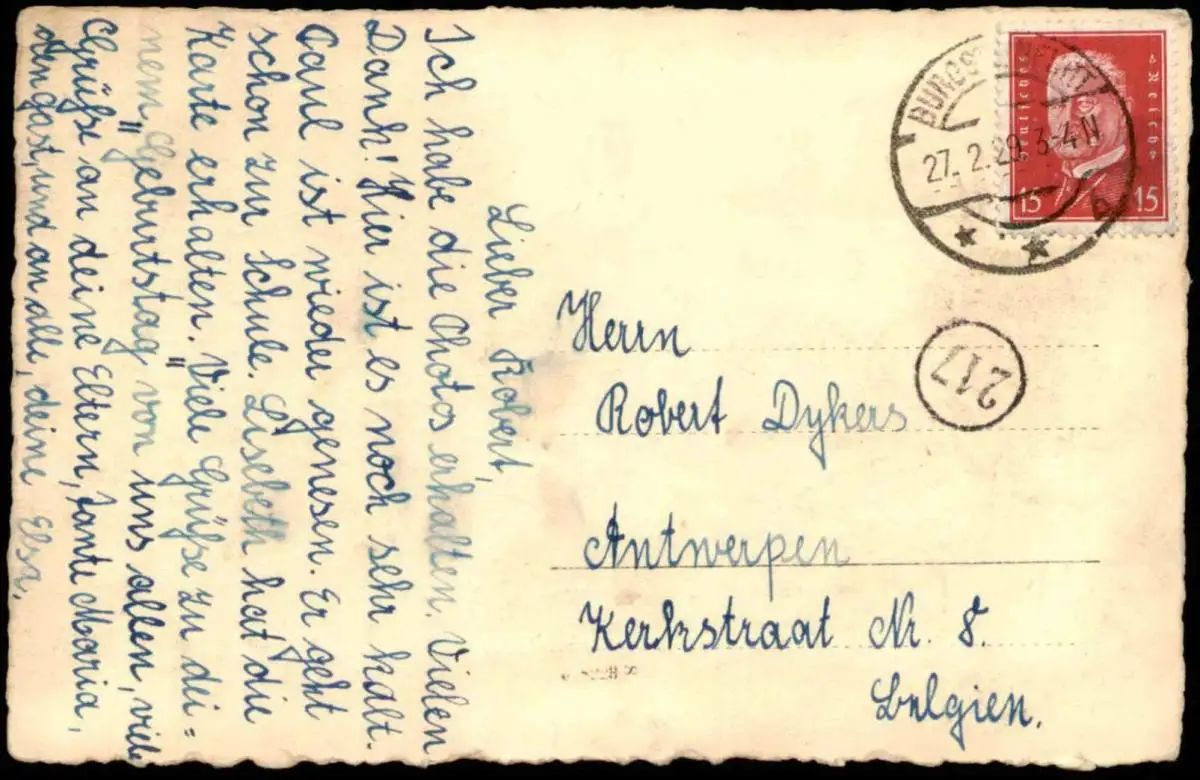 Lieber Robert,
Ich habe die Photos erhalten. Vielen
Dank! Hier ist es noch sehr kalt.
Paul ist wieder genesen. Er geht
schon zur Schule. Lisebeth hat die
Karte erhalten. „Viele Grüße zu dei=
nem „Geburtstag von uns allen, viele
Grüße an deine Eltern, Tante Maria,
den gast, und an alle, deine Elsa.
Herrn
Robert Dykers
Antwerpen
Kerkstraat Nr. 8.
Belgien.
27. 2. 29. 3-4 N
Deutsches Reich
15 15
217